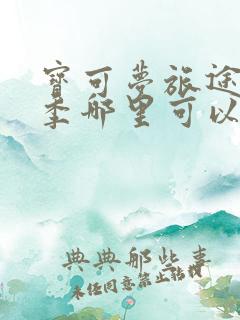 宝可梦旅途
季哪里可以
典典那些事
未经同意禁止转载